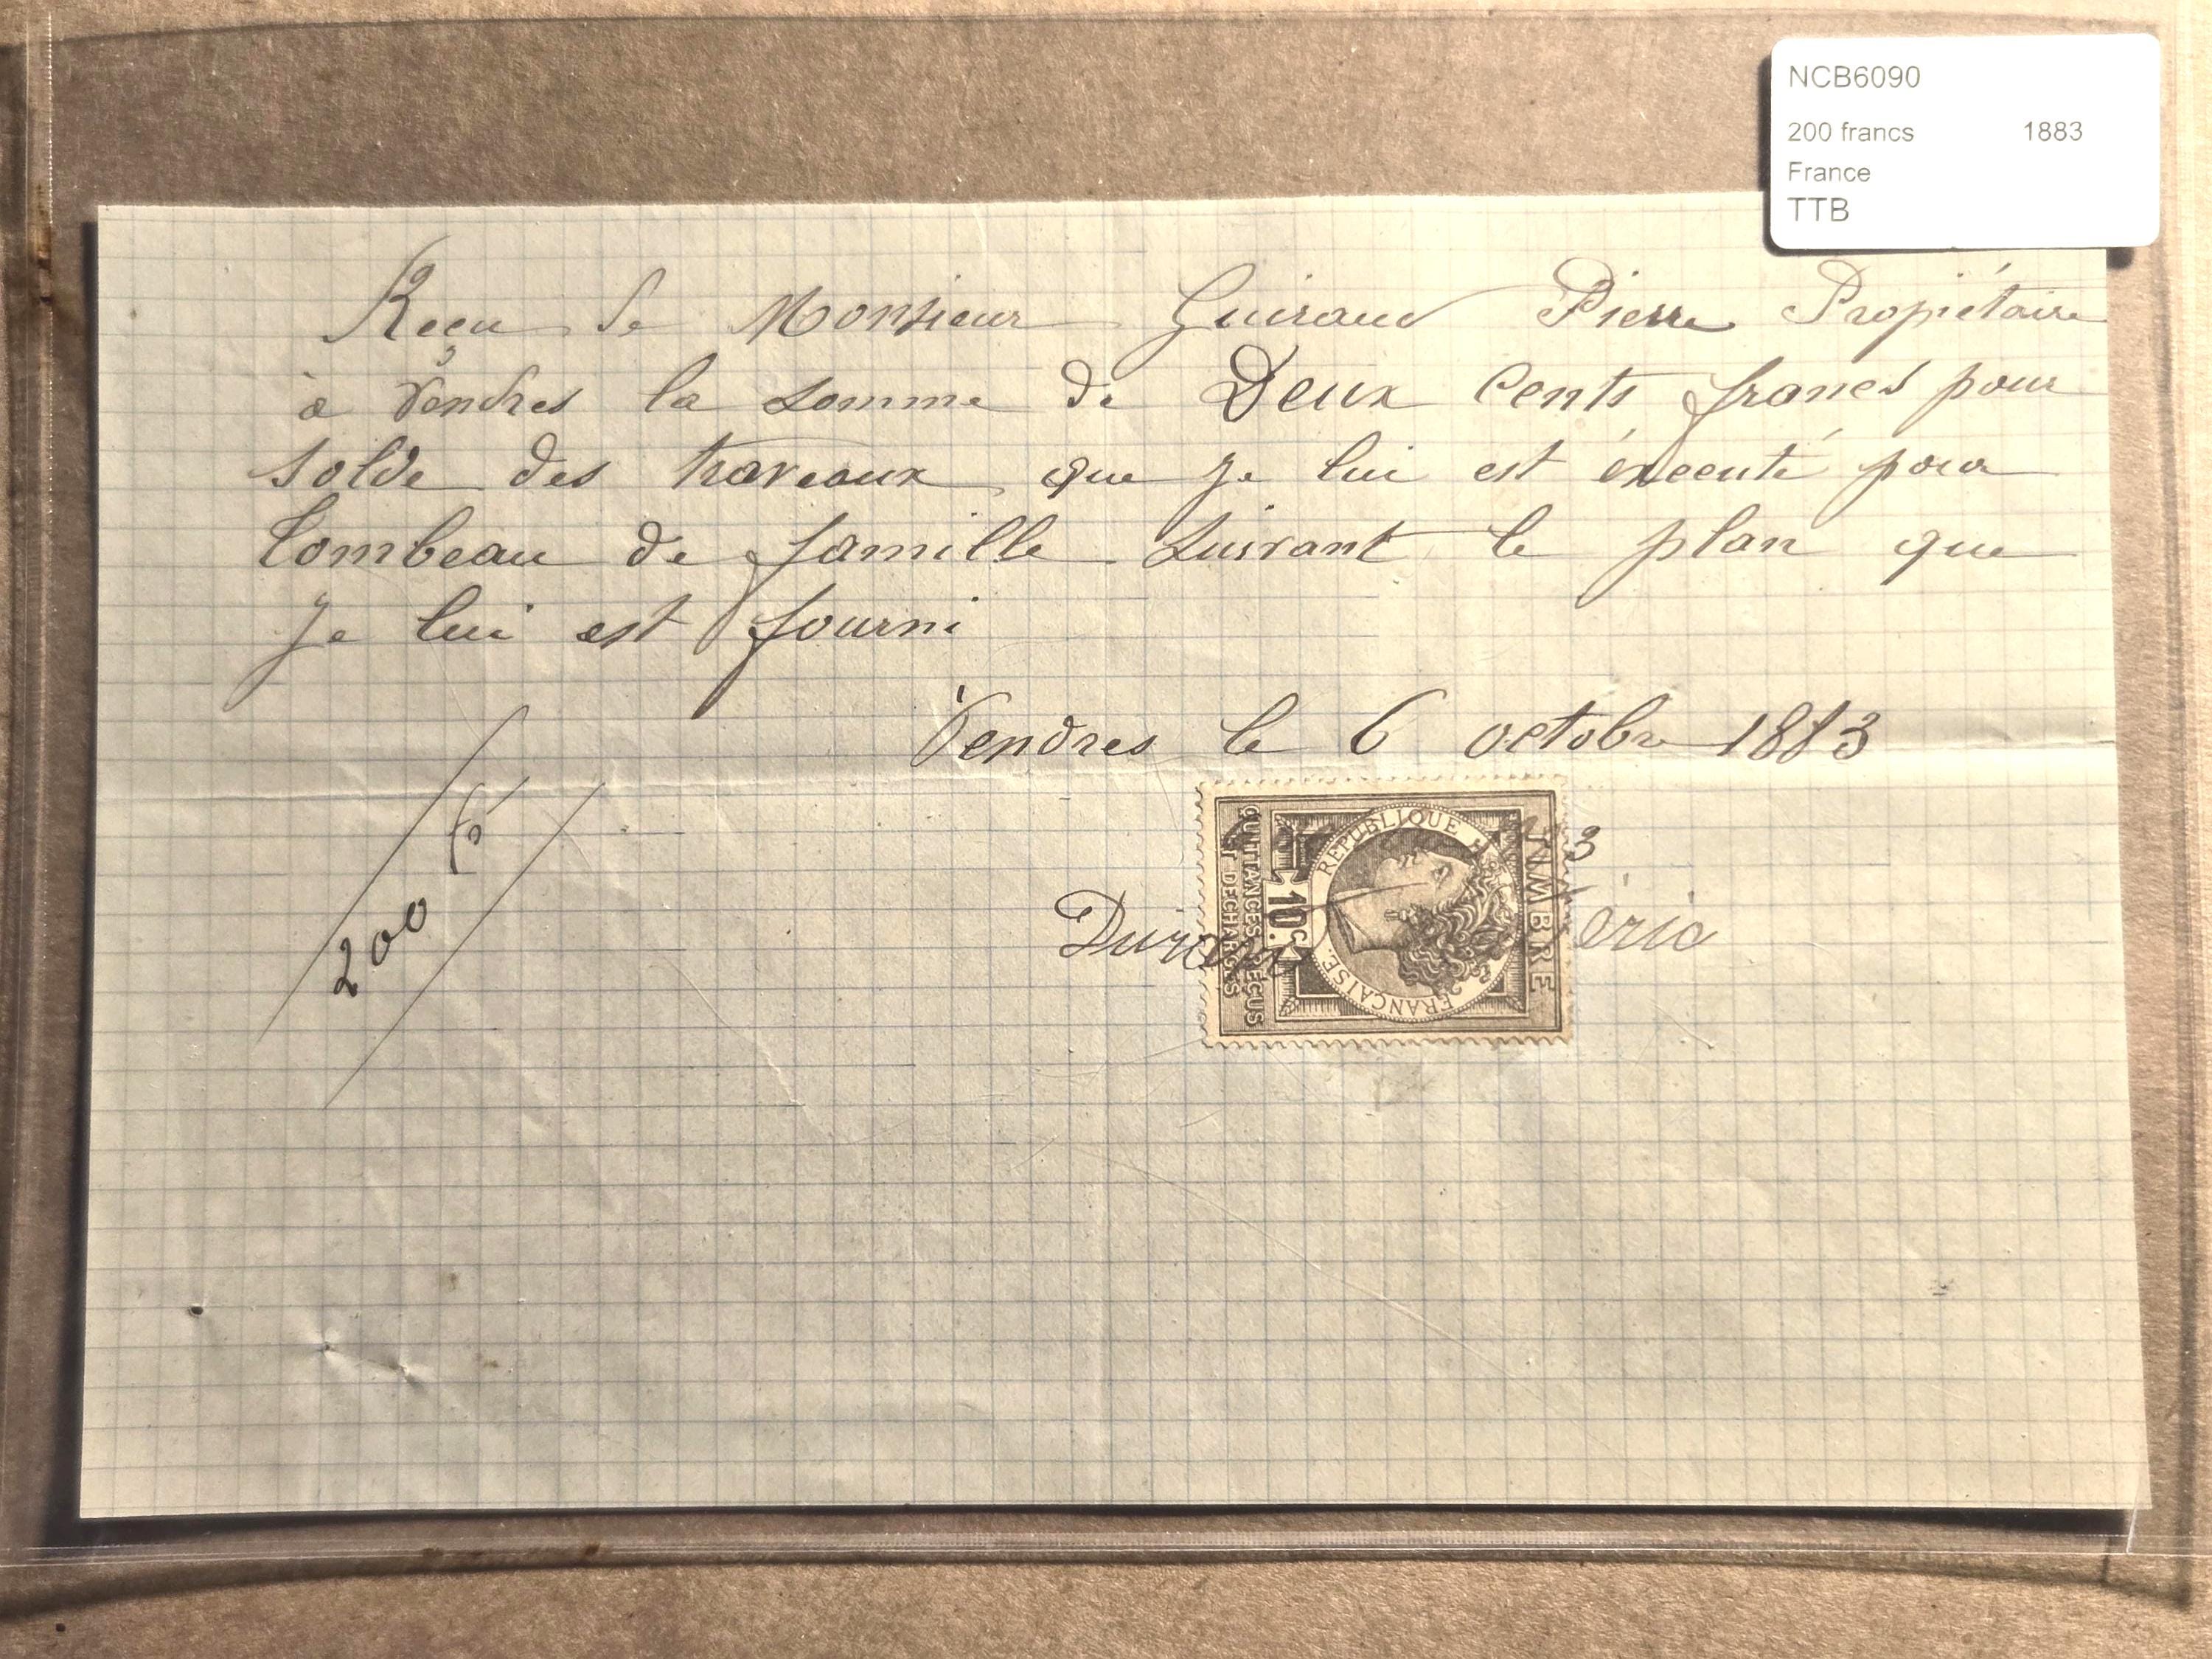 NCB6090
200 francs 1883
France
TTB
Reçu de Monsieur Guiraud Pierre Propiétaire
à Vendres la somme de Deux Cents francs pour
solde des traveaux que je lui est éxecuté pour
tombeau de famille suivant le plan que
je lui est fourni
Vendres le 6 octobre 1883
200 f
3
Durand éric
TIMBRE
RÉPUBLIQUE FRANÇAISE
10 C.
QUITTANCES REÇUS
ET DÉCHARGES